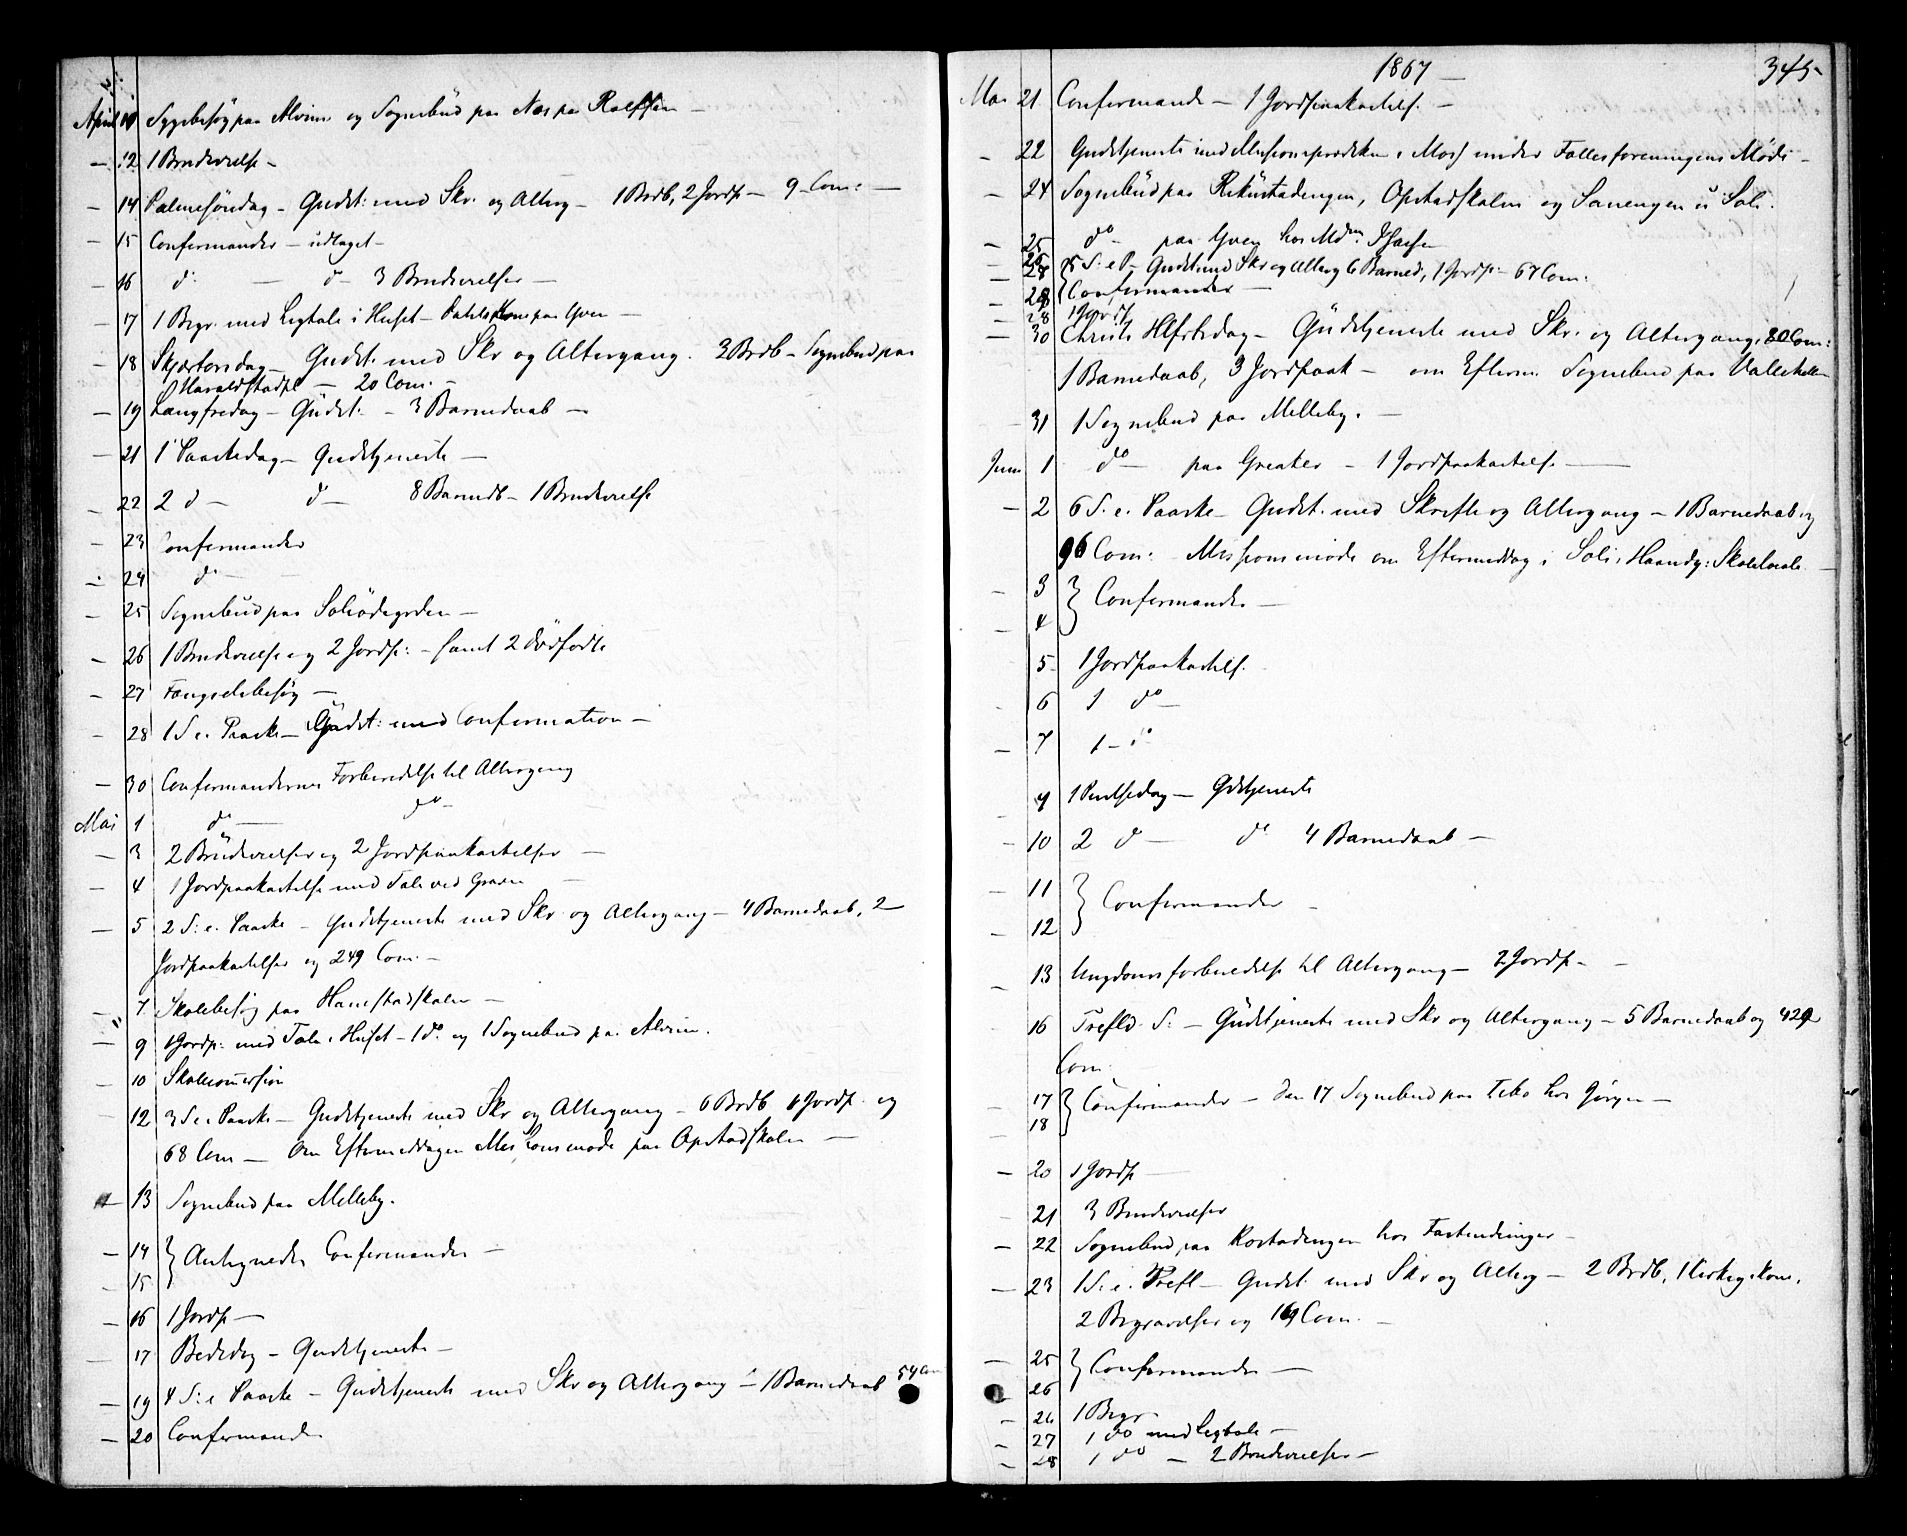 April 11 Sygebesøg paa Alvim og Sognebud paa Næs paa Rolfsøen —
— 12 1 Brudevielse —
— 14 Palmesøndag — Gudst: med Skr. og Alterg — 1 Brdb, 2 Jordp — 9 Com: —
— 15 Confirmander — udlaget —
— 16 do — do 3 Brudevielser —
— 17 1 Begr. med Ligtale i Huset — paa Yven —
— 18 Skjærtorsdag — Gudst. med Skr og Altergang. 3 Brdb — Sognebud paa
Haraldstadpl — 20 Com. —
— 19 Langfredag — Gudst: — 3 Barnedaab —
— 21 1 Paaskedag — Gudstjeneste —
— 22 2 d — d — 8 Barnedb — 1 Brudevielse
— 23 Confirmander
— 24 do —
— 25 Sognebud paa Soliødegården —
— 26 1 Brudevielse og 2 Jordp: — samt 2 dødfødte
— 27 Fængselsbesøg —
— 28 1 S e. Paaske — Gudst: med Confirmation —
— 30 Confirmandernes Forberedelse til Altergang
Mai 1 do — do —
— 3 2 Brudevielser og 2 Jordpaakastelser —
— 4 1 Jordpaakastelse med Tale ved Graven —
— 5 2 S: e. Paaske — Gudstjeneste med Skr og Altergang — 4 Barnedaab, 2
Jordpaakastelser og 249 Com. —
— 7 Skolebesøg paa Hanestadskolen —
— 9 1 Jordp: med Tale i Huset — 1 do og 1 Sognebud paa Alvim.
— 10 Skolecommission
— 12 3 S e. Paaske — Gudstjeneste med Skr og Altergang — 6 Brdb 6 Jordp. og
68 Com — Om Eftermeddagen Missionsmøde paa Opstadskolen —
— 13 Sognebud paa Melleby.
— 14 } Antegnede Confirmander —
— 15
— 16 1 Jordp —
— 17 Bededag — Gudstjeneste —
— 19 4 S: e Paaske — Gudstjeneste med Skr og Altergang — 1 Barnedaab 54 Com
— 20 Confirmander
1867 — 345
Mai 21 Confirmande — 1 Jordpaakastelse. —
— 22 Gudstjeneste med Missionsprædiken i Moss under Fællesforeningens Møde —
— 24 Sognebud paa Rekustadengen, Opstadskolen og Sanengen u Soli.
— 25 do — paa Yven hos Mdm. Isaksen
— 26 5 S: e P — Gudst med Skr og Alterg 6 Barned, 1 Jordp: — 67 Com:
— 28 Confirmander —
— 28 1 Jordp
— 30 Christi Hflrtsdag — Gudstjeneste med Skr. og Altergang. 80 Com:
1 Barnedaab, 3 Jordpaak — om Efterm. Sognebud paa
31 1 Sognebud paa Melleby. —
Juni 1 do — paa Greaker — 1 Jordpaakastelse. —
— 2 6 S. e. Paaske — Gudst. med Skrifte og Altergang — 1 Barnedaab og
96 Com: — Missionsmøde om Eftermeddag i Soli. Haandv: Skolelocale —
— 3 } Confirmander —
— 4
5 1 Jordpaakastelse.
6 1 do —
— 7 1 — do
9 1 Pintsedag — Gdstjeneste
— 10 2 d — do 4 Barnedaab —
— 11 } Confirmander —
— 12
— 13 Ungdoms forberedelse til Altergang — 2 Jordp —
16 Trefld. S: — Gudstjeneste med Skr og Altergang — 5 Barnedaab og 429
Com.
— 17 } Confirmander — den 17 Sognebud paa hos Jørgen —
— 18
— 20 1 Jordp —
21 3 Brudevielser
— 22 Sognebud paa hos —
— 23 1 S. e. Trefl — Gudst. med Skr og Alterg — 2 Brdb, 1 Kirkegskom.
2 Begravelser og 169 Com. —
— 25 } Confirmander —
— 26
— 26 1 Begr —
— 27 1 do med Ligtale —
— 28 1 do — 2 Brudevielser —